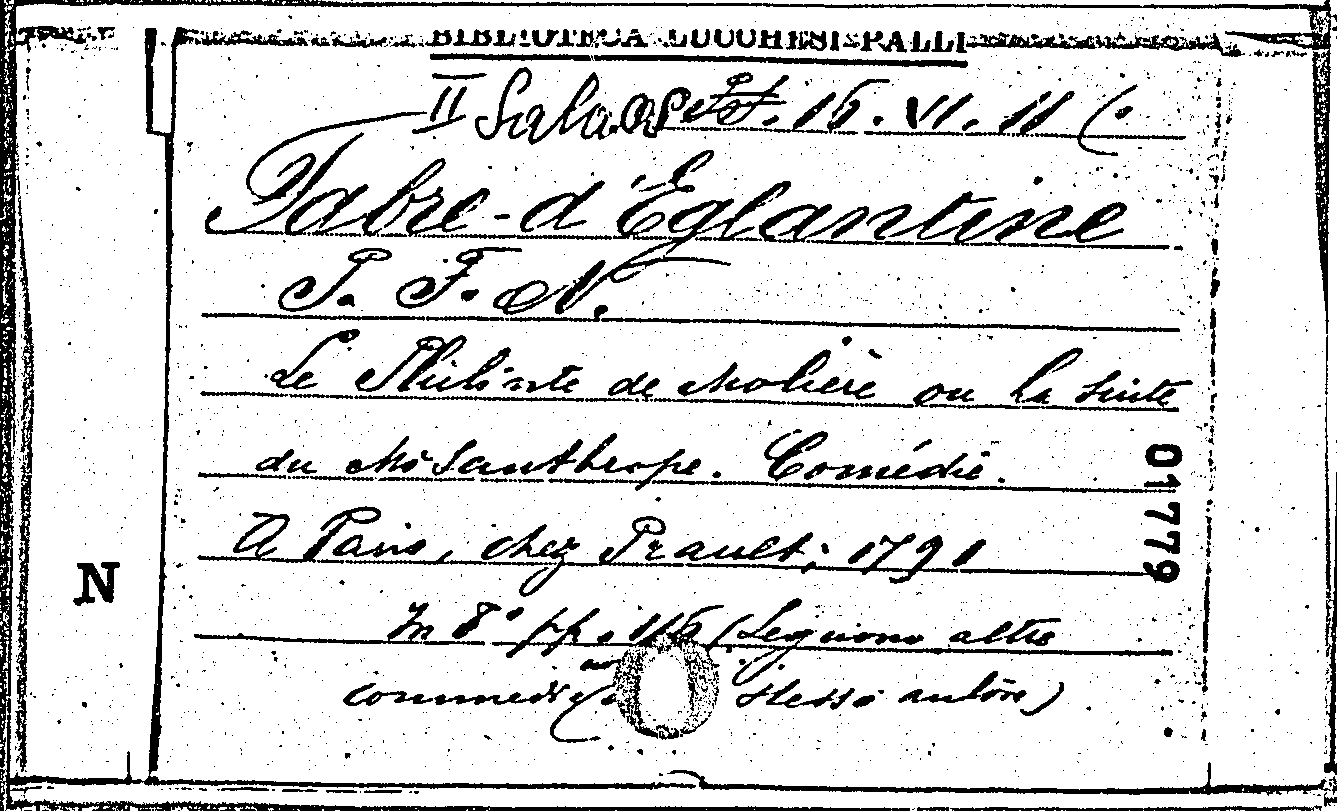 BIBLIOTECA LUCCHESI-PALLI
II Sala 15. VI. 11 (.
Fabre-d'Églantine
P. F. N.
Le Philinte de Molière ou la suite
du Misanthrope. Comédie.
A Paris, chez Prault, 1791
In 8° pp. 116 (Seguono altre
commedie stesso autore)
01779
N